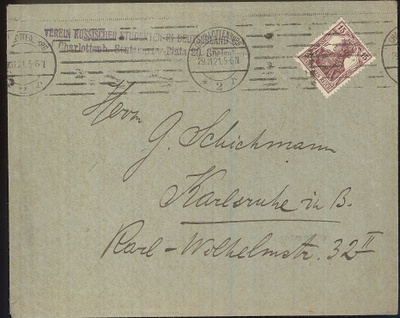 VEREIN RUSSISCHER STUDENTEN IN DEUTSCHLAND
Charlottenb.
29.11.21.5-6N
75 75
Herrn
G. Schichmann
Karlsruhe in B.
Karl-Wilhelmstr. 32 II